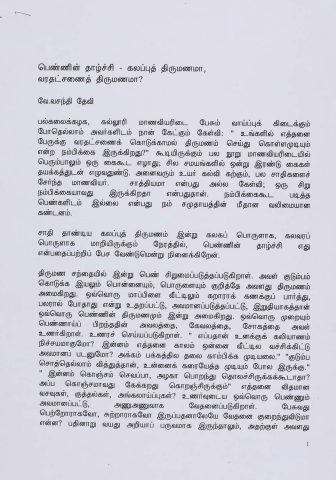 பெண்ணின் தாழ்ச்சி - கலப்புத் திருமணமா,
வரதட்சணைத் திருமணமா?
வே.வசந்தி தேவி
பல்கலைக்கழக, கல்லூரி மாணவியரிடை பேசும் வாய்ப்புக் கிடைக்கும்
போதெல்லாம் அவர்களிடம் நான் கேட்கும் கேள்வி: " உங்களில் எத்தனை
பேருக்கு வரதட்சணை கொடுக்காமல் திருமணம் செய்து கொள்ளமுடியும்
என்ற நம்பிக்கை இருக்கிறது?" கூடியிருக்கும் பல நூறு மாணவியரிடையில்
பெரும்பாலும் ஒரு கைகூட எழாது; சில சமயங்களில் ஒன்று இரண்டு கைகள்
தயக்கத்துடன் எழுவதுண்டு. அனைவரும் உயர் கல்வி கற்கும், பல சாதிகளைச்
சேர்ந்த மாணவியர். சாத்தியமா என்பது அல்ல கேள்வி; ஒரு சிறு
நம்பிக்கையாவது இருக்கிறதா என்பதுதான். நம்பிக்கைகூட படித்த
பெண்களிடம் இல்லை என்பது நம் சமுதாயத்தின் மீதான வலிமையான
கண்டனம்.
சாதி தாண்டிய கலப்புத் திருமணம் இன்று கலகப் பொருளாக, கலவரப்
பொருளாக மாறியிருக்கும் நேரத்தில், பெண்ணின் தாழ்ச்சி எது
என்பதைப்பற்றிப் பேச வேண்டுமென்று நினைக்கிறேன்.
திருமண சந்தையில் இன்று பெண் சிறுமைப்படுத்தப்படுகிறாள். அவள் குடும்பம்
கொடுக்க இயலும் பொன்னையும், பொருளையும் குறித்தே அவளது திருமணம்
அமைகிறது. ஒவ்வொரு மாப்பிளை வீட்டிலும் கறாராகக் கணக்குப் பார்த்து,
பலரால் போதாது என்று உதறப்பட்டு, அவமானப்படுத்தப்பட்டு, இறுதியாகத்தான்
ஒவ்வொரு பெண்ணின் திருமணமும் இன்று அமைகிறது. ஒவ்வொரு முறையும்
பெண்ணாய்ப் பிறந்ததின் அவலத்தை, கேவலத்தை, சோகத்தை அவள்
உணர்கிறாள். உணரச் செய்யப்படுகிறாள். " எப்பதான் உனக்குக் கலியாணம்
நிச்சமாகுமோ? இன்னும் எத்தனை காலம் ஒன்னை வீட்டில வச்சிக்கிட்டு
அவமானப் படணுமோ? அக்கம் பக்கத்தில தலை காம்பிக்க முடியலை." "குடும்ப
சொத்தெல்லாம் வித்துத்தான், உன்னைக் கரையேத்த முடியும் போல இருக்கு."
" இன்னும் கொஞ்சம் செவப்பா, அழகா பொறந்து தொலச்சிருக்கக்கூடாதா?
அப்ப கொஞ்சமாவது கேக்கறது கொறஞ்சிருக்கும்" எத்தனை விதமான
வசவுகள், குத்தல்கள், அங்கலாய்ப்புகள்? உணர்வுடைய ஒவ்வொரு பெண்ணும்
அவமானப்பட்டு, அணுஅணுவாக வேதனைப்படுகிறாள். பேசுவது
பெற்றோராகவோ, சுற்றாராகவோ இருப்பதனாலேயே வேதனை குறைந்துவிடுமா
என்ன? பதினாறு வயது அறியாப் பருவமாக இருந்தாலும், அதற்குள் அவளது
1